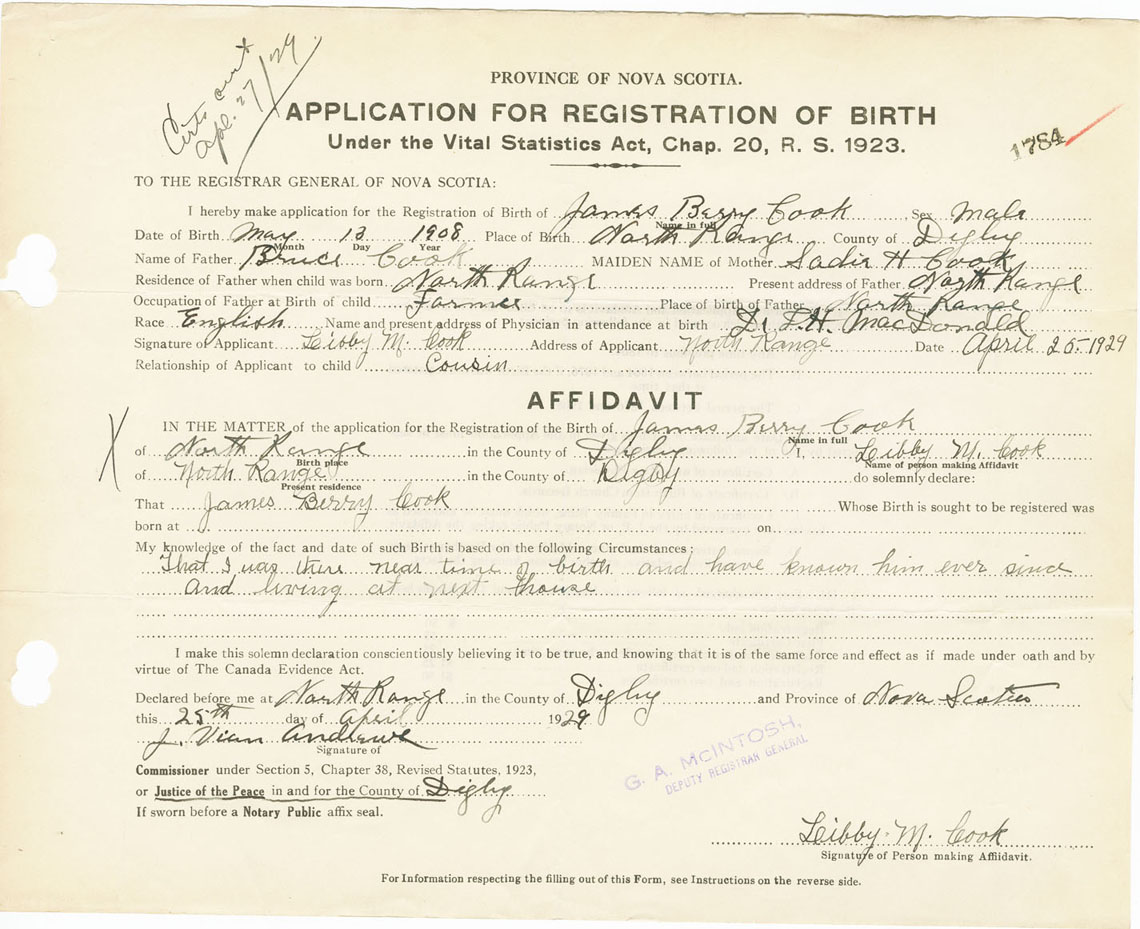 Certs out
Apl. 27/29
PROVINCE OF NOVA SCOTIA.
APPLICATION FOR REGISTRATION OF BIRTH
Under the Vital Statistics Act, Chap. 20, R. S. 1923.
1784
TO THE REGISTRAR GENERAL OF NOVA SCOTIA:
I hereby make application for the Registration of Birth of James Berry Cook Sex Male
Name in full
Date of Birth May 13 1908 Place of Birth North Range County of Digby
Month Day Year
Name of Father Bruce Cook MAIDEN NAME of Mother Sadie H Cook
Residence of Father when child was born North Range Present address of Father North Range
Occupation of Father at Birth of child Farmer Place of birth of Father North Range
Race English Name and present address of Physician in attendance at birth Dr MacDonald
Signature of Applicant Libby M. Cook Address of Applicant North Range Date April 25. 1929
Relationship of Applicant to child Cousin
AFFIDAVIT
X
IN THE MATTER of the application for the Registration of the Birth of James Berry Cook
Name in full
of North Range in the County of Digby I. Libby M. Cook
Birth place Name of person making Affidavit
of North Range in the County of Digby do solemnly declare:
Present residence
That James Berry Cook Whose Birth is sought to be registered was
born at on
My knowledge of the fact and date of such Birth is based on the following Circumstances:
That I was there near time of birth and have known him ever since
and living at next house
I make this solemn declaration conscientiously believing it to be true, and knowing that it is of the same force and effect as if made under oath and by
virtue of The Canada Evidence Act.
Declared before me at North Range in the County of Digby and Province of Nova Scotia
this 25th day of April 1929
J. Andrews
Signature of
G. A. MCINTOSH,
DEPUTY REGISTRAR GENERAL
Commissioner under Section 5, Chapter 38, Revised Statutes, 1923,
or Justice of the Peace in and for the County of Digby
If sworn before a Notary Public affix seal.
Libby M. Cook
Signature of Person making Affidavit.
For Information respecting the filling out of this Form, see Instructions on the reverse side.